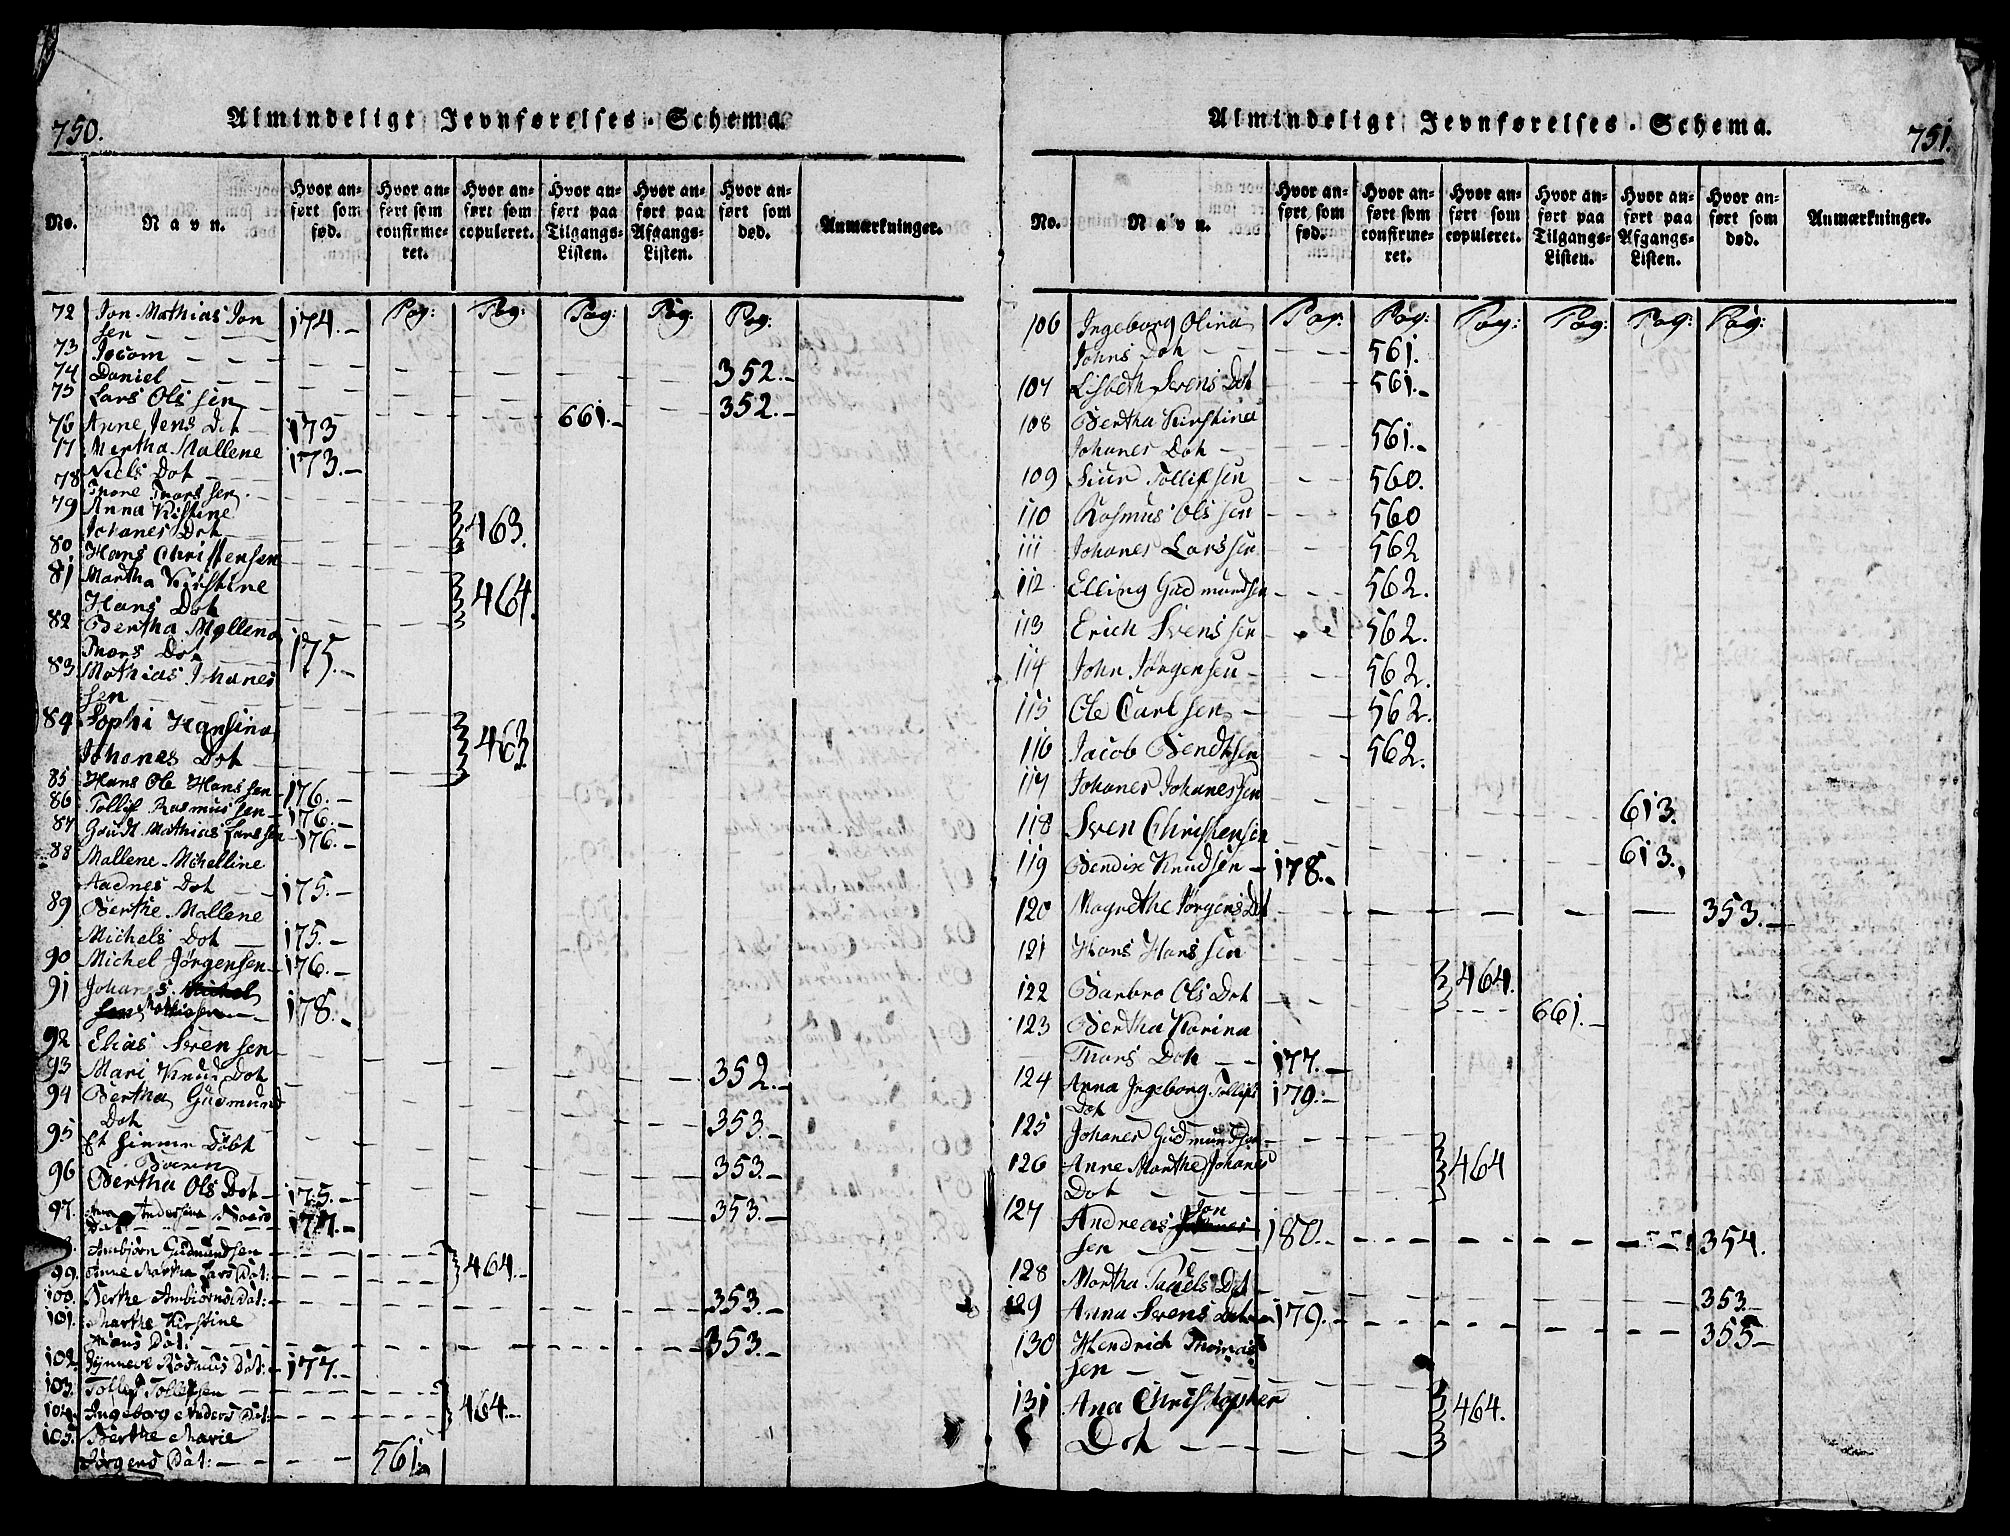 750.
Almindeligt Jevnførelses-Schema.
No.
Navn.
Hvor an-
ført som
fød.
Hvor an-
ført som
confirme-
ret.
Hvor an-
ført som
copuleret.
Hvor an-
ført paa
Tilgangs-
Listen.
Hvor an-
ført paa
Afgangs-
Listen.
Hvor an-
ført som
død.
Anmærkninger.
Pag: Pag: Pag: Pag. Pag:
72 Jon Mathias Jon
sen 174.
73 Jocom
74 Daniel 352.
75 Lars Olssen 352.
76 Anne Jens Dot 173 661.
77 Mertha Mallene
Niels Dot 173.
78 Thore Thorssen
79 Anna Kistine
Johanes Dot 463.
80 Hans Christensen
81 Martha Kirstine
Hans Dot 464.
82 Bertha Mallena
Thors Dot 175.
83 Mathias Johanes
sen
84 Sophi Hansina
Johanes Dot 463
85 Hans Ole Hanssen 176.
86 Tollif Rasmussen 176.
87 Gundt Mathias Larssen 176.
88 Mallene Michelline
Aadnes Dot 175.
89 Berthe Mallene
Michels Dot 175.
90 Michel Jørgensen 176.
91 Johanes
178.
92 Elias Svensen
93 Mari Knud Dot 352.
94 Bertha Gudmund
Dot 353.
95 Et hiemme Døbt
Baren 353.
96 Bertha Ols Dot 175. 353.
97. 177.
Ambjørn Gudmundsen
464.
99. Anne Martha Lars Dat:
100. Berthe Ambiørns Dat: 353.
101. Marthe Kirstine
Dat: 353.
102. Synneve Rasmus Dat: 177.
103. Tollef Tollefsen
464.
104. Ingeborg Anders Dat:
105. Berthe Marie
Jørgens Dat: 561.
Almindeligt Jevnførelses-Schema.
751.
No.
Navn.
Hvor an-
ført som
fød.
Hvor an-
ført som
confirme-
ret.
Hvor an-
ført som
copuleret.
Hvor an-
ført paa
Tilgangs-
Listen.
Hvor an-
ført paa
Afgangs-
Listen.
Hvor an-
ført som
død.
Anmærkninger.
Pag. Pag: Pag: Pag: Pag: Pag:
106 Ingeborg Olina
Johns Dot 561.
107 Lisbeth Svens Dot 561.
108 Bertha Kirstina
Johanes Dot 561.
109 Siur Tollifsen 560.
110 Rasmus Olssen 560
111 Johanes Larssen 562
112 Elling Gudmundsen 562.
113 Erich Svenssen 562.
114 John Jørgensen 562.
115 Ole Carlsen 562.
116 Jacob Bendtsen 562.
117 Johanes Johanessen 613.
118 Sven Christensen 613.
119 Bendix Knudsen 178.
120 Magrethe Jørgens Dot 353.
121 Hans Hanssen
464.
122 Barbro Ols Dot 661.
123 Bertha Karina
Thors Dot 177.
124 Anna Ingeborg Tollifs
Dot 179.
125 Johanes Gudmundsen
464
126 Anne Marthe Johanes
Dot
127 Andreas Jon
sen 180. 354.
128 Martha Dot 353.
129 Anna Svens Dot 179. 355
130 Hendrich Thomas
sen
464.
131 Ana Christopher
Dot